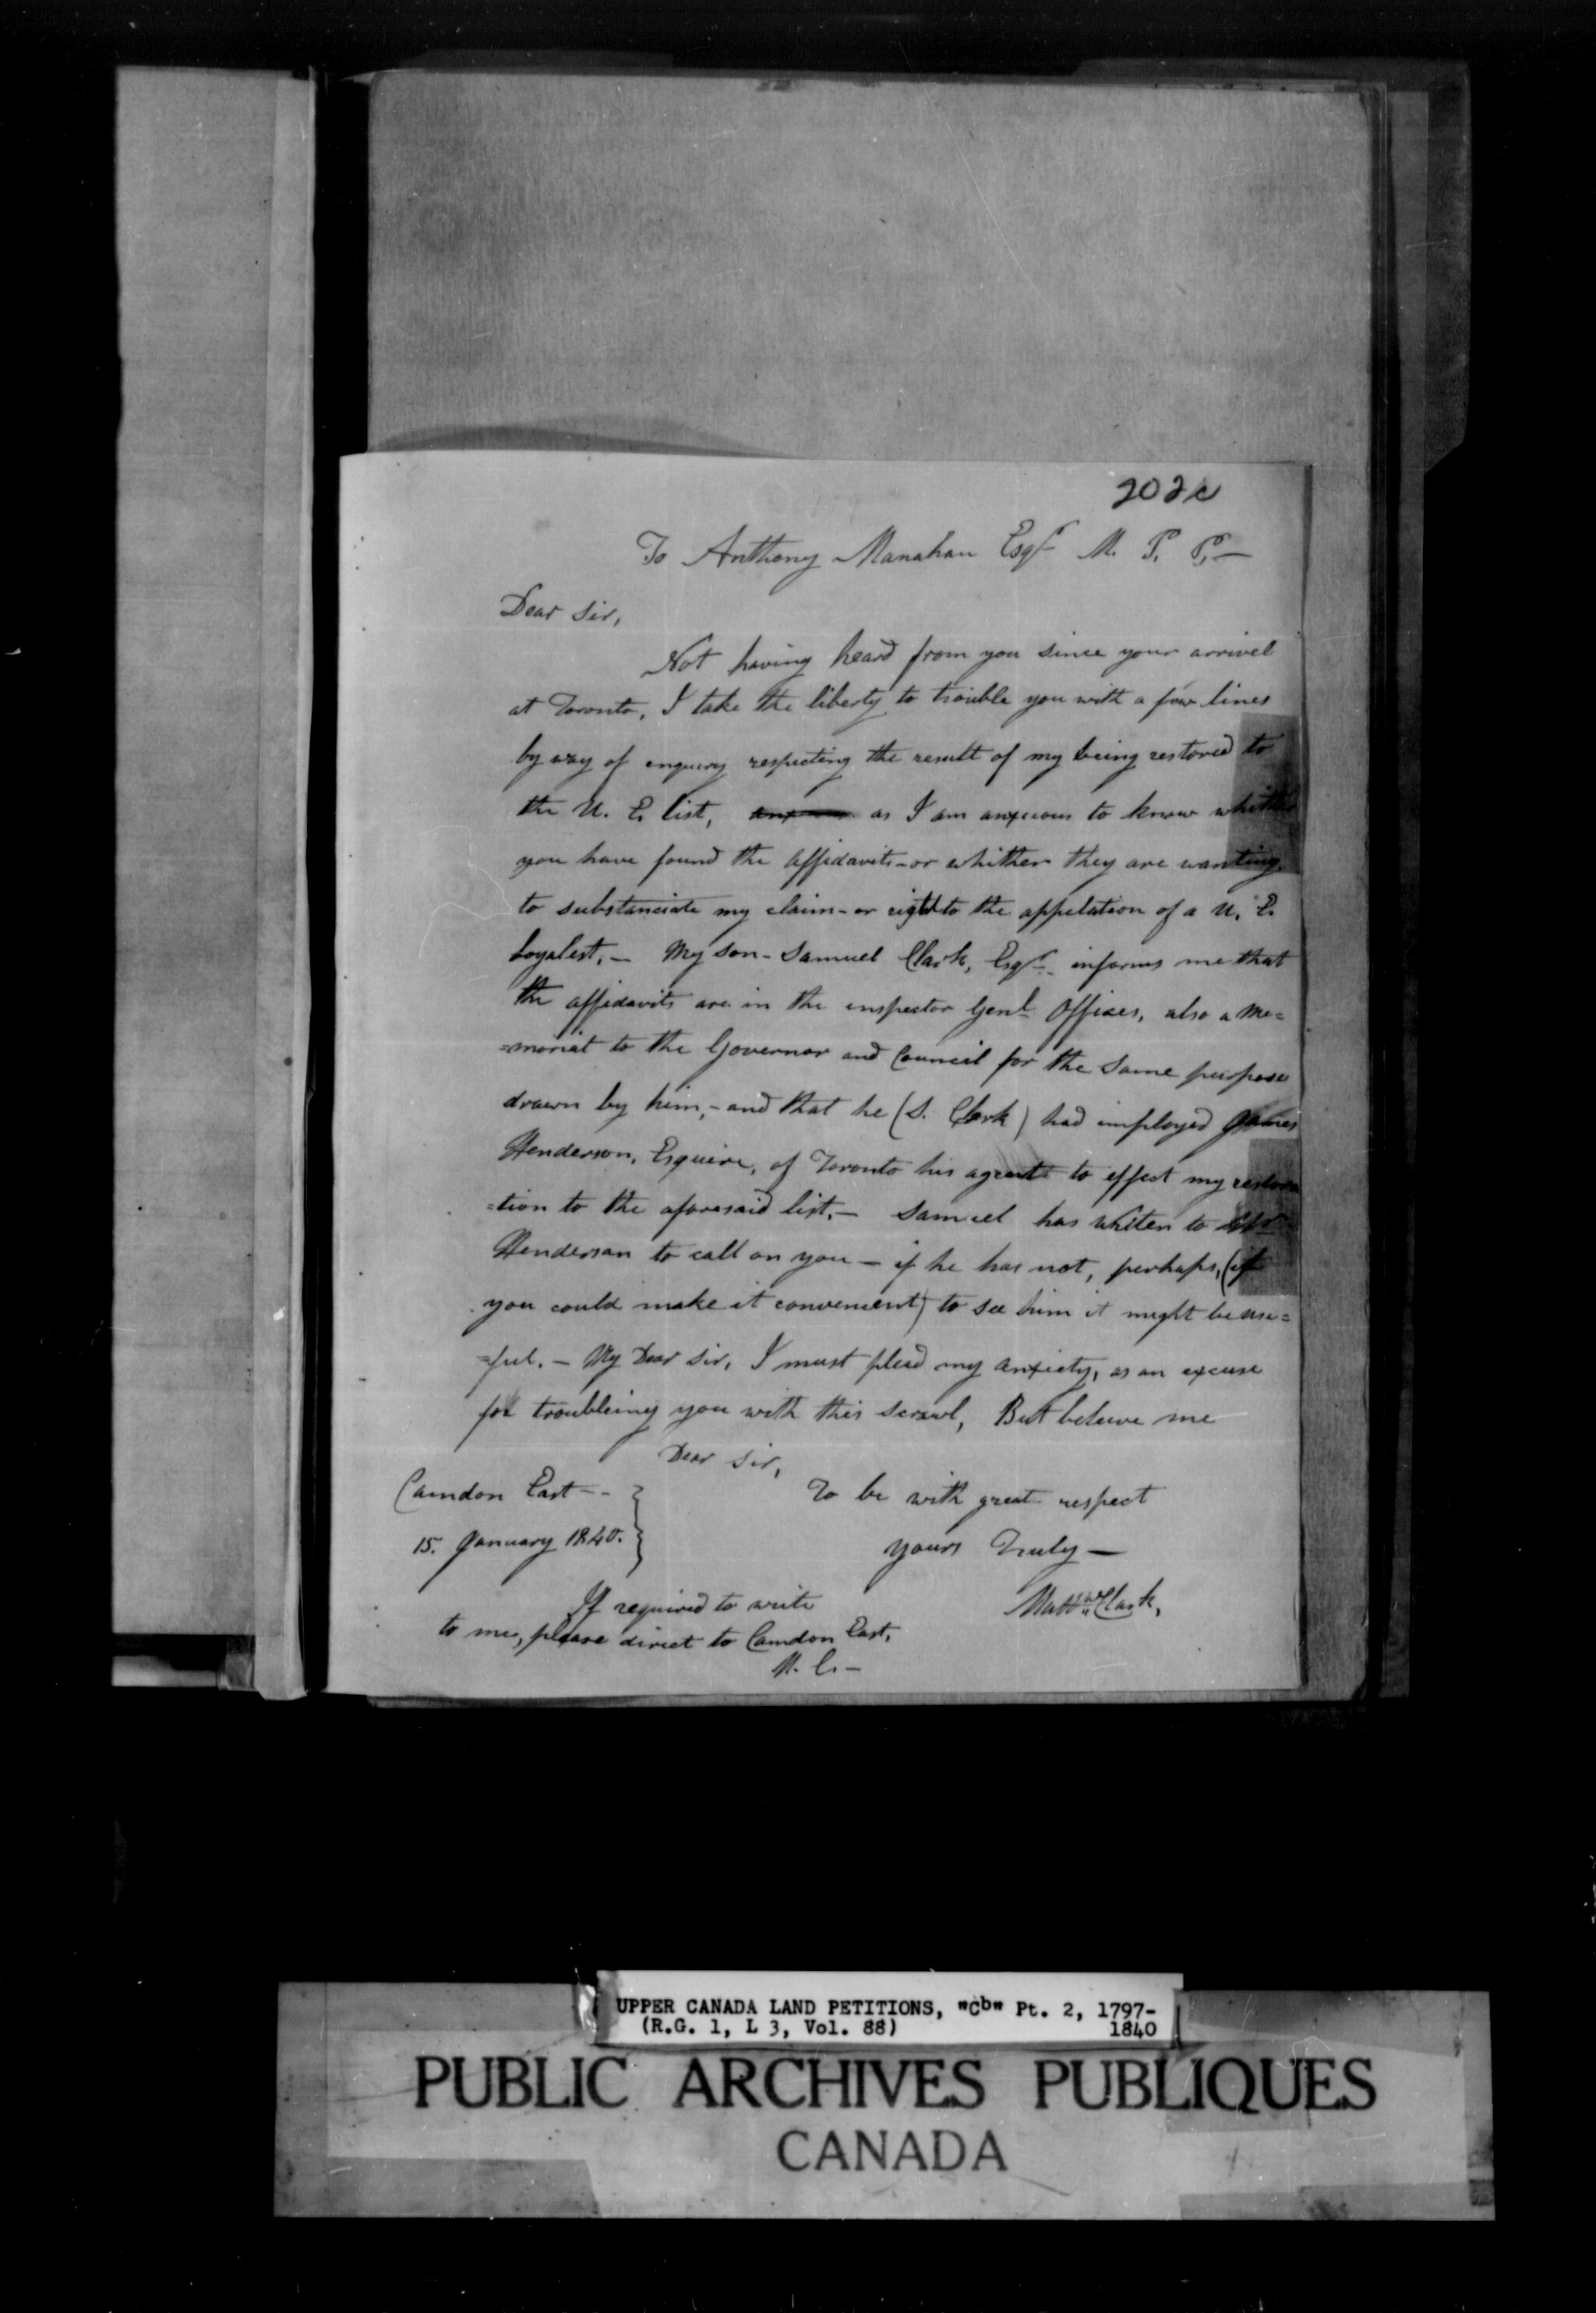 202c
To Anthony Manahan Esqr M. P. P. —
Dear Sir,
Not having heard from you since your arrivel
at Toronto, I take the liberty to trouble you with a few lines
by way of enquiry respecting the result of my being restored to
the U. E. list, as I am anxcious to know whither
you have found the affidavits - or whither they are wanting
to substanciate my claim - or right to the appelation of a U. E.
Loyalest. — My son - Samuel Clark, Esqr - informs me that
the affidavits are in the inspector Genl Offices, also a me=
=morial to the Governor and Council for the same purpose
drawn by him, - and that he (S. Clark) had imployed James
Henderson, Esquire, of Toronto his agent to effect my restora
=tion to the aforesaid list. — Samuel has writen to Mr
Henderson to call on you — if he has not, perhaps, (if
you could make it convenient) to see him it might be use=
=ful. — My Dear Sir, I must plead my anxiety, as an excuse
for troubleing you with this scrawl, But beleive me
Dear Sir,
To be with great respect
yours Truly —
Mattw Clark,
Camdon East - -
15. January 1840.
If required to write
to me, please direct to Camdon East,
U. C. —
UPPER CANADA LAND PETITIONS, "Cb" Pt. 2, 1797-
(R.G. 1, L 3, Vol. 88) 1840
PUBLIC ARCHIVES PUBLIQUES
CANADA